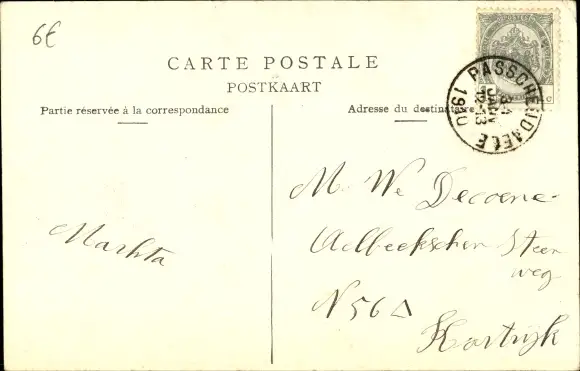 6€
CARTE POSTALE
POSTKAART
Partie réservée à la correspondance
Adresse du destinataire
PASSCHENDAELE
12-13
1910
M. We Decoene
Aelbeekschen Steen
weg
N 56A
Kortrijk
Martha